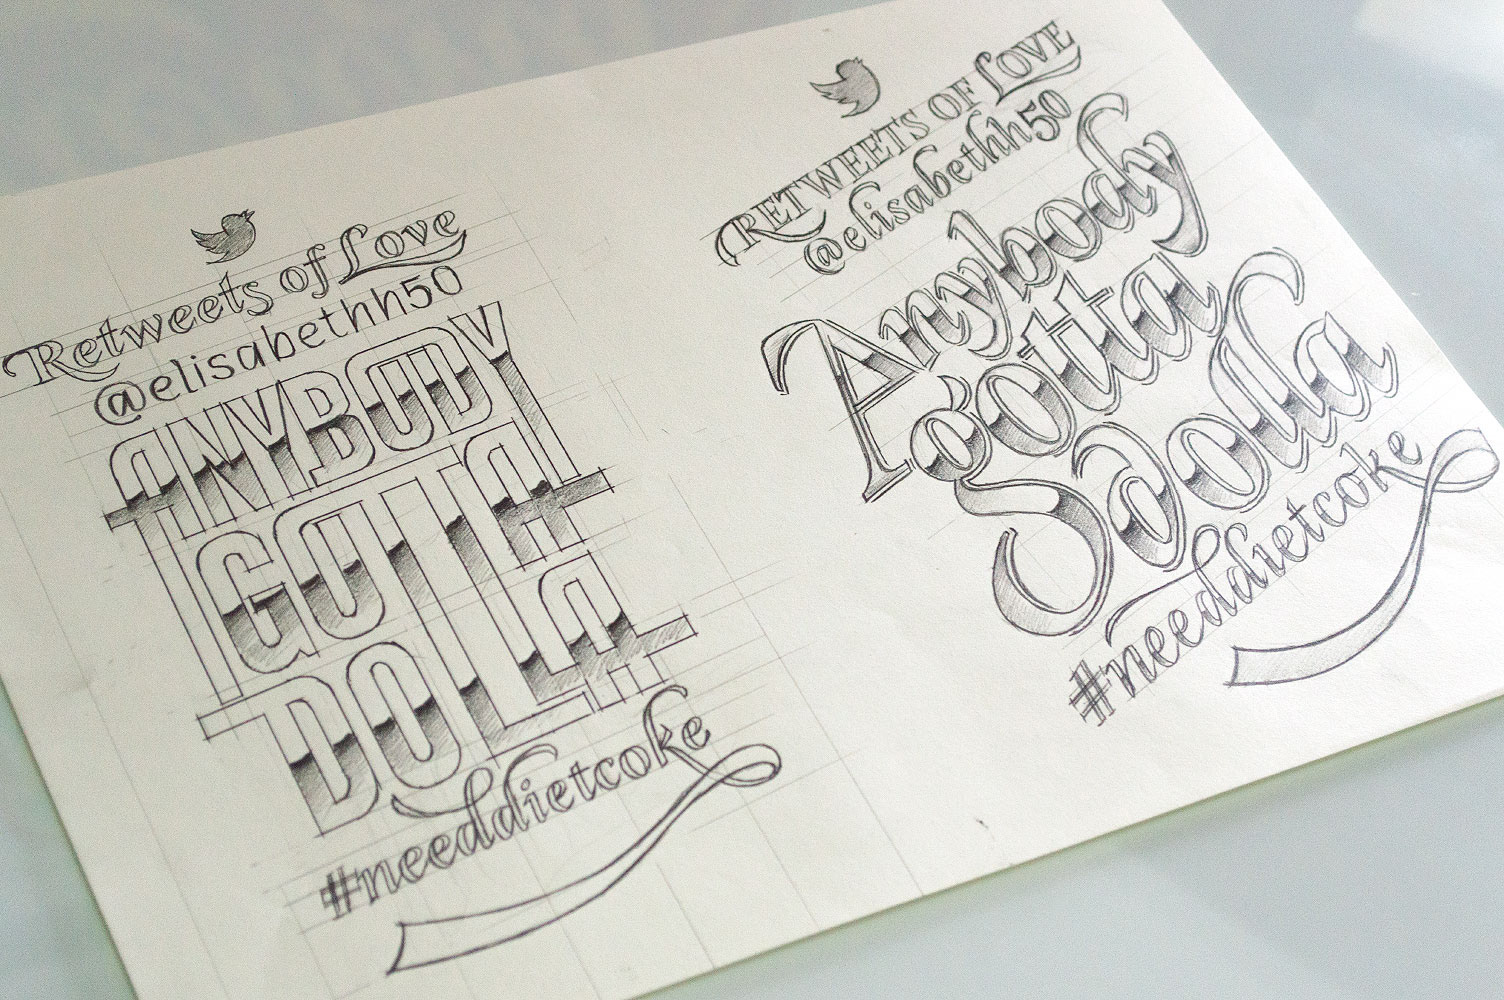 Retweets of Love
@elisabethh50
ANYBODY
GOTTA
DOLLA
#needdietcoke
RETWEETS OF LOVE
@elisabethh50
Anybody
gotta
Dolla
#needdietcoke